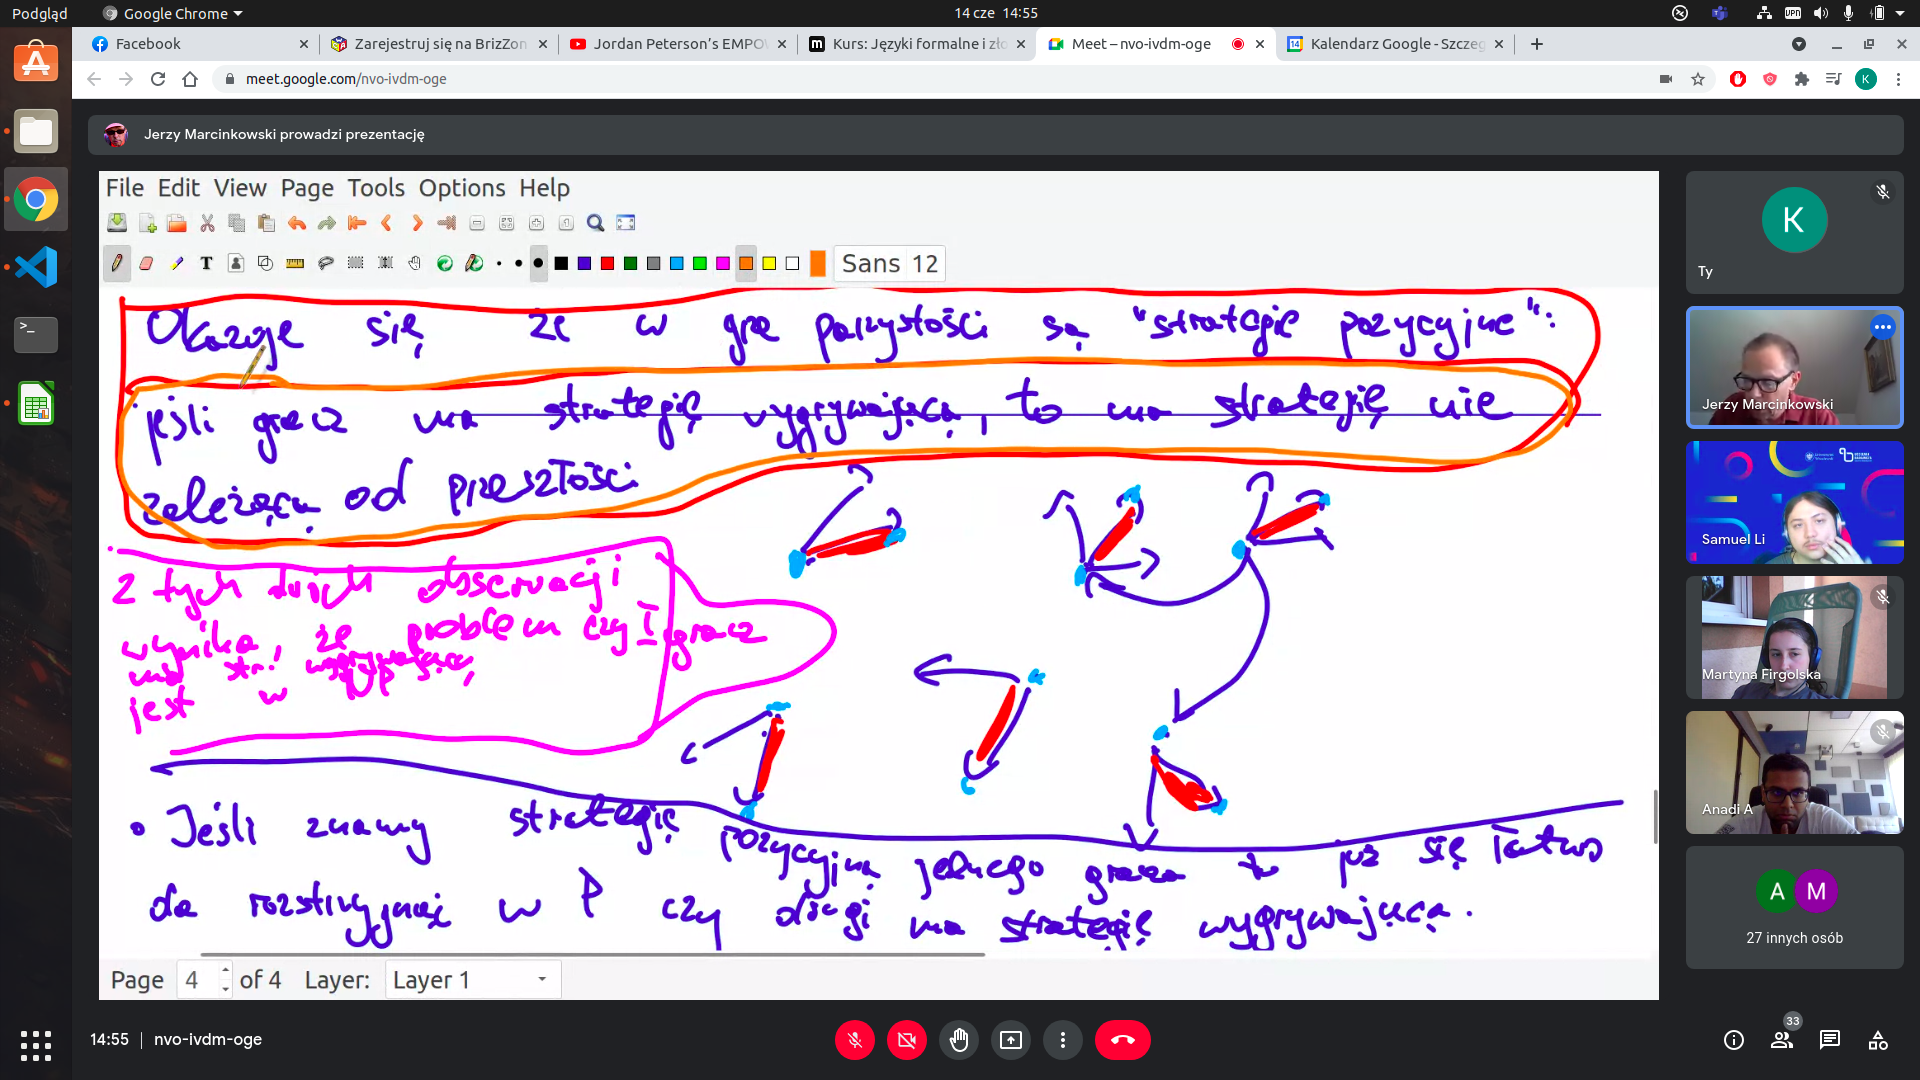 Podgląd
Google Chrome
14 cze 14:55
Facebook
Zarejestruj się na BrizZon
Jordan Peterson's EMPO
Kurs: Języki formalne i zło
Meet – nvo-ivdm-oge
Kalendarz Google - Szczeg
meet.google.com/nvo-ivdm-oge
K
Jerzy Marcinkowski prowadzi prezentację
File Edit View Page Tools Options Help
Sans 12
Okazuje się że w grze parzystości są "strategie pozycyjne":
jeśli gracz ma strategię wygrywającą, to ma strategię nie
zależącą od przeszłości
Z tych dwóch obserwacji
wynika, że problem czy I gracz
ma str. wygrywającą
jest w
• Jeśli znamy strategię pozycyjną jednego gracza to już się łatwo
da rozstrzygnąć w P czy drugi ma strategię wygrywającą.
Page 4 of 4 Layer: Layer 1
K
Ty
Jerzy Marcinkowski
Samuel Li
Martyna Firgolska
Anadi A
A M
27 innych osób
14:55 | nvo-ivdm-oge
33